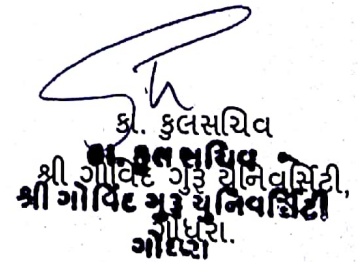 કા. કુલસચિવ
કા. કુલસચિવ
શ્રી ગોવિંદ ગુરુ યુનિવર્સિટી,
શ્રી ગોવિંદ ગુરુ યુનિવર્સિટી
ગોધરા.
ગોધરા